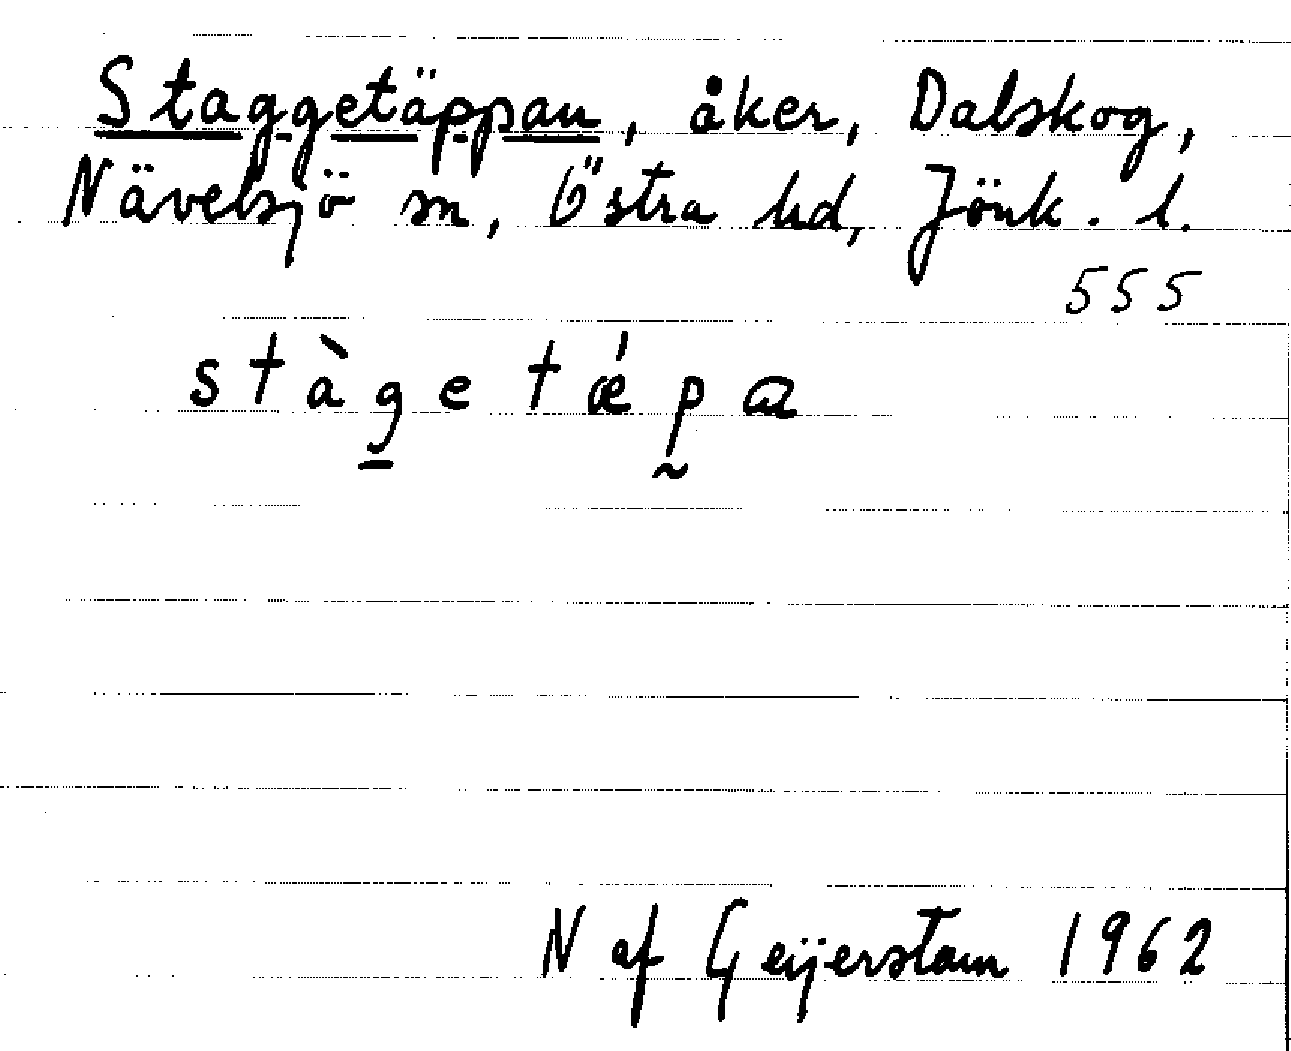 Staggetäppan, åker, Dalskog,
Nävelsjö sn, Östra hd, Jönk. l.
555
stàg̲etǽp̰a
N af Geijerstam 1962